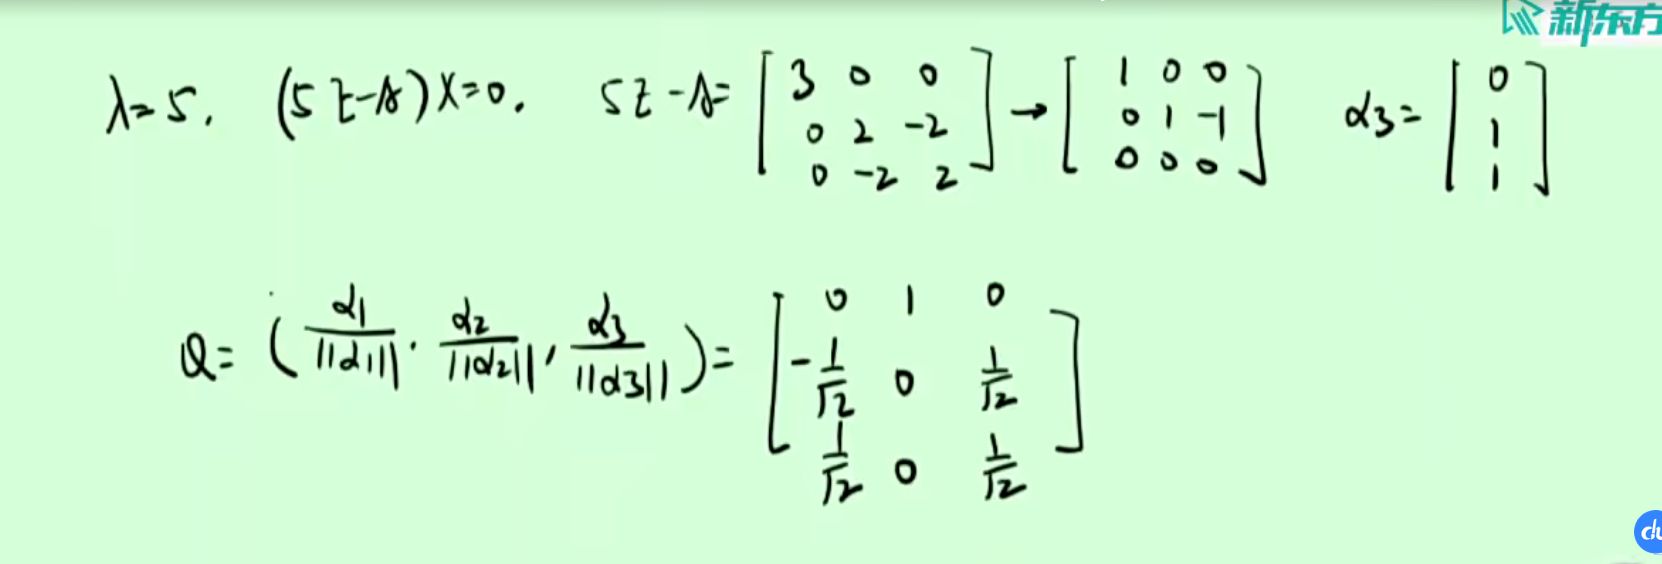 新东方
λ=5. (5E-A)X=0. 5E-A= [3 0 0; 0 2 -2; 0 -2 2] → [1 0 0; 0 1 -1; 0 0 0] α3= [0; 1; 1]
Q= (α1/||α1||, α2/||α2||, α3/||α3||)= [0 1 0; -1/√2 0 1/√2; 1/√2 0 1/√2]
du